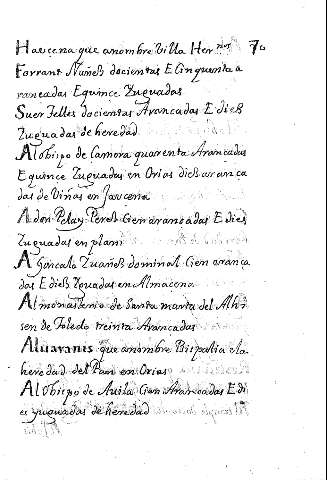 Haeçena que anombre Villa Her.nos 70
Forrant Nuñes docientas E Cinquenta a
rancadas E quince Yuguadas
Suer Telles docientas Arancadas E dies
Yuguadas de heredad
Al obispo de Camora quarenta Arancadas
E quince Yuguadas en Orias dies arança
das de Viñas en Jaucena
A don Pelay Peres Cien arancadas E dies
Yuguadas en plani
A Goncalo Yuañes dominal Cien arança
das E dies Yguadas en Almacena
Al monasterio de Santa maria del Alhi
sen de Toledo treinta Arancadas
Aluavanis que anombre Bispalia ela
heredad del Pan en Orias
Al Obispo de Auila Cien Arancadas E di
es yuguadas de heredad